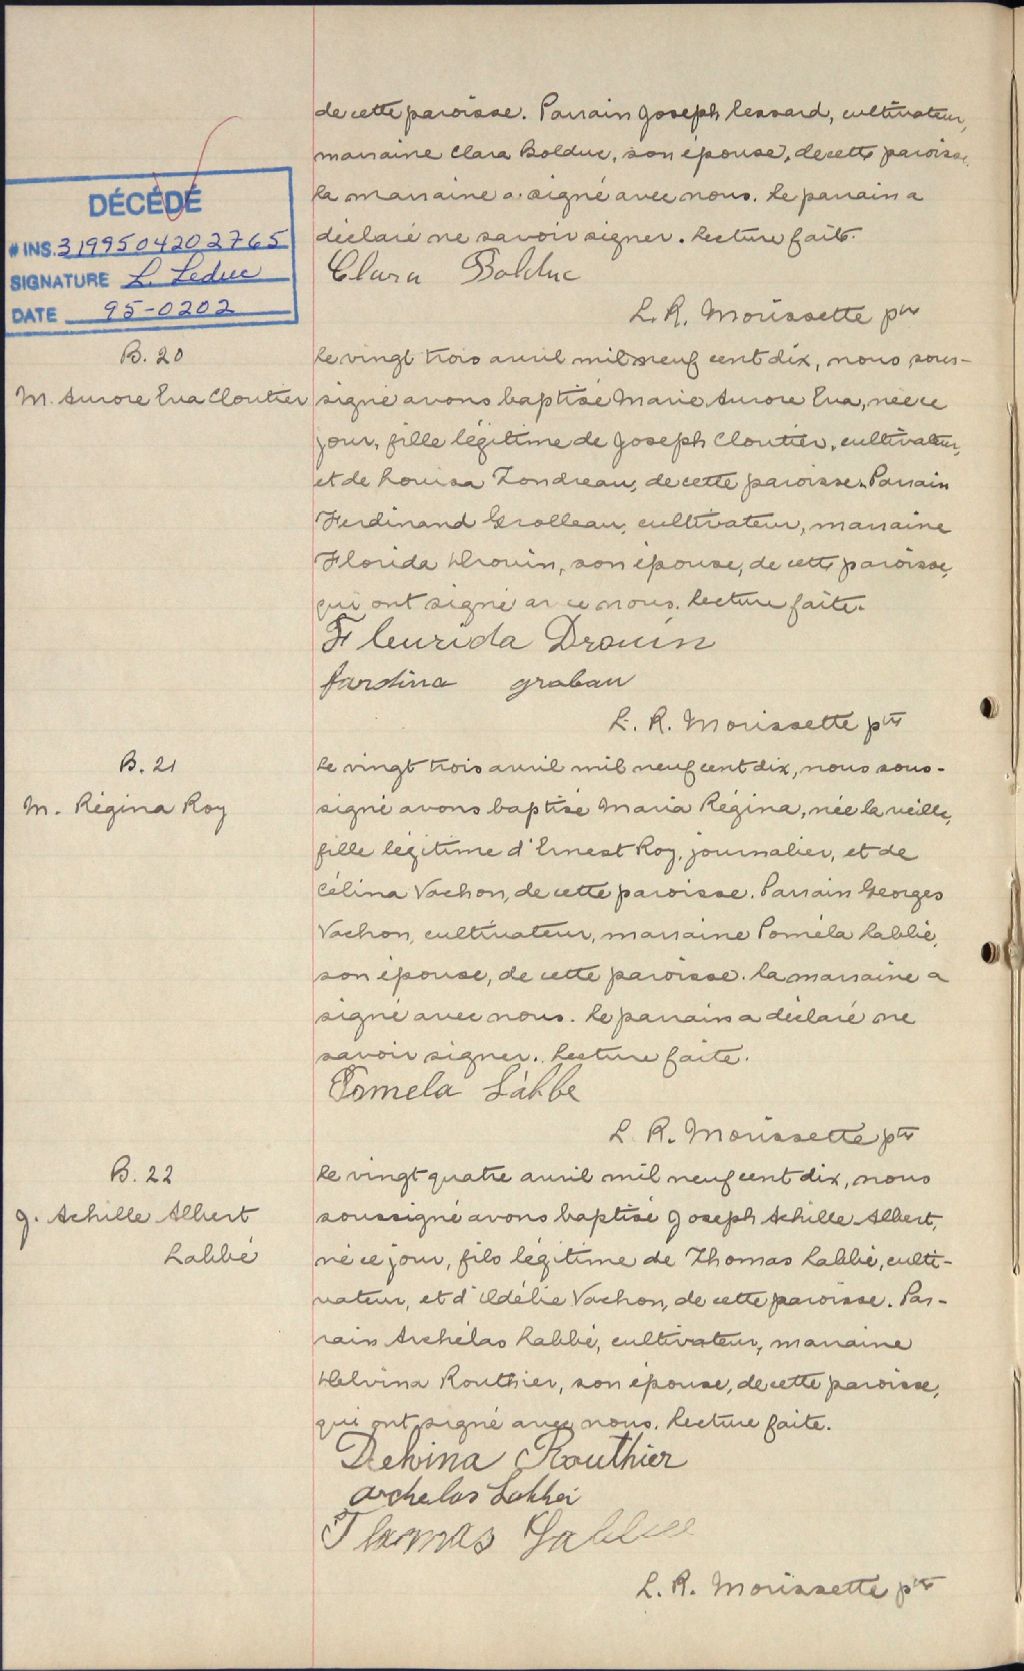 de cette paroisse. Parrain Joseph Lessard, cultivateur,
marraine Clara Bolduc, son épouse, de cette paroisse.
La marraine a signé avec nous. Le parrain a
déclaré ne savoir signer. Lecture faite.
Clara Bolduc
L. R. Morissette ptre
DÉCÉDÉ
# INS. 3199504202765
SIGNATURE L. Leduc
DATE 95-0202
B. 20
M. Aurore Eva Cloutier
Le vingt trois avril mil neuf cent dix, nous sous-
signé avons baptisé Marie Aurore Eva, née ce
jour, fille légitime de Joseph Cloutier, cultivateur,
et de Louisa Tondreau, de cette paroisse. Parrain
Ferdinand Grolleau, cultivateur, marraine
Florida Drouin, son épouse, de cette paroisse,
qui ont signé avec nous. Lecture faite.
Fleurida Drouin
fardina grabau
L. R. Morissette ptre
B. 21
M. Régina Roy
Le vingt trois avril mil neuf cent dix, nous sous-
signé avons baptisé Maria Régina, née la veille,
fille légitime d'Ernest Roy, journalier, et de
Célina Vachon, de cette paroisse. Parrain Georges
Vachon, cultivateur, marraine Poméla Labbé,
son épouse, de cette paroisse. La marraine a
signé avec nous. Le parrain a déclaré ne
savoir signer. Lecture faite.
Pomela Labbe
L. R. Morissette ptre
B. 22
J. Achille Albert
Labbé
Le vingt quatre avril mil neuf cent dix, nous
soussigné avons baptisé Joseph Achille Albert,
né ce jour, fils légitime de Thomas Labbé, culti-
vateur, et d'Adélie Vachon, de cette paroisse. Par-
rain Archélas Labbé, cultivateur, marraine
Delvina Routhier, son épouse, de cette paroisse,
qui ont signé avec nous. Lecture faite.
Delvina Routhier
archelas Labbé
Thomas
L. R. Morissette ptre